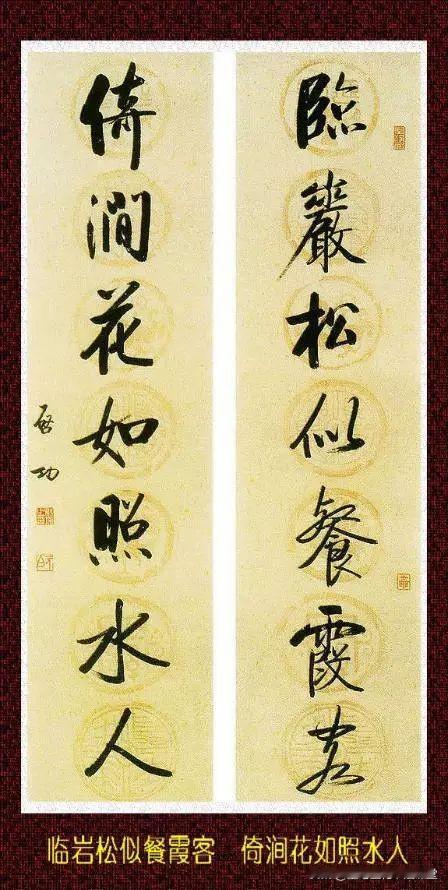 臨巖松似餐霞客
倚澗花如照水人
啟功
临岩松似餐霞客 倚涧花如照水人